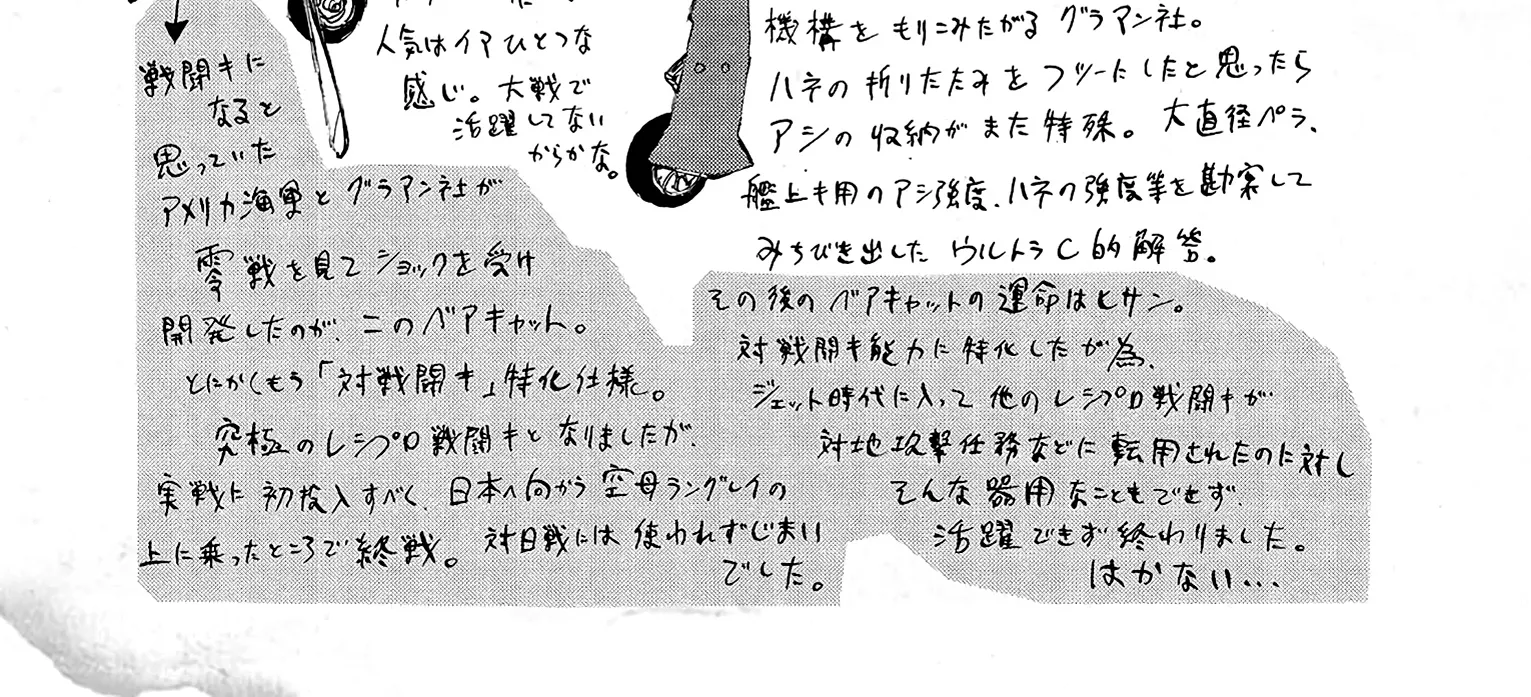 人気はイマひとつな
感じ。大戦で
活躍してない
からかな。
機構をもりこみたがるグラマン社。
ハネの折りたたみをフツーにしたと思ったら
アシの収納がまた特殊。大直径ペラ、
艦上キ用のアシ強度、ハネの強度等を勘案して
みちびき出したウルトラC的解答。
戦闘キに
なると
思っていた
アメリカ海軍とグラマン社が
零戦を見てショックを受け
開発したのが、このベアキャット。
とにかくもう「対戦闘キ」特化仕様。
究極のレシプロ戦闘キとなりましたが、
実戦に初投入すべく、日本へ向かう空母ラングレイの
上に乗ったところで終戦。対日戦には使われずじまい
でした。
その後のベアキャットの運命はヒサン。
対戦闘キ能力に特化したが為、
ジェット時代に入って他のレシプロ戦闘キが
対地攻撃任務などに転用されたのに対し
そんな器用なこともできず、
活躍できず終わりました。
はかない…